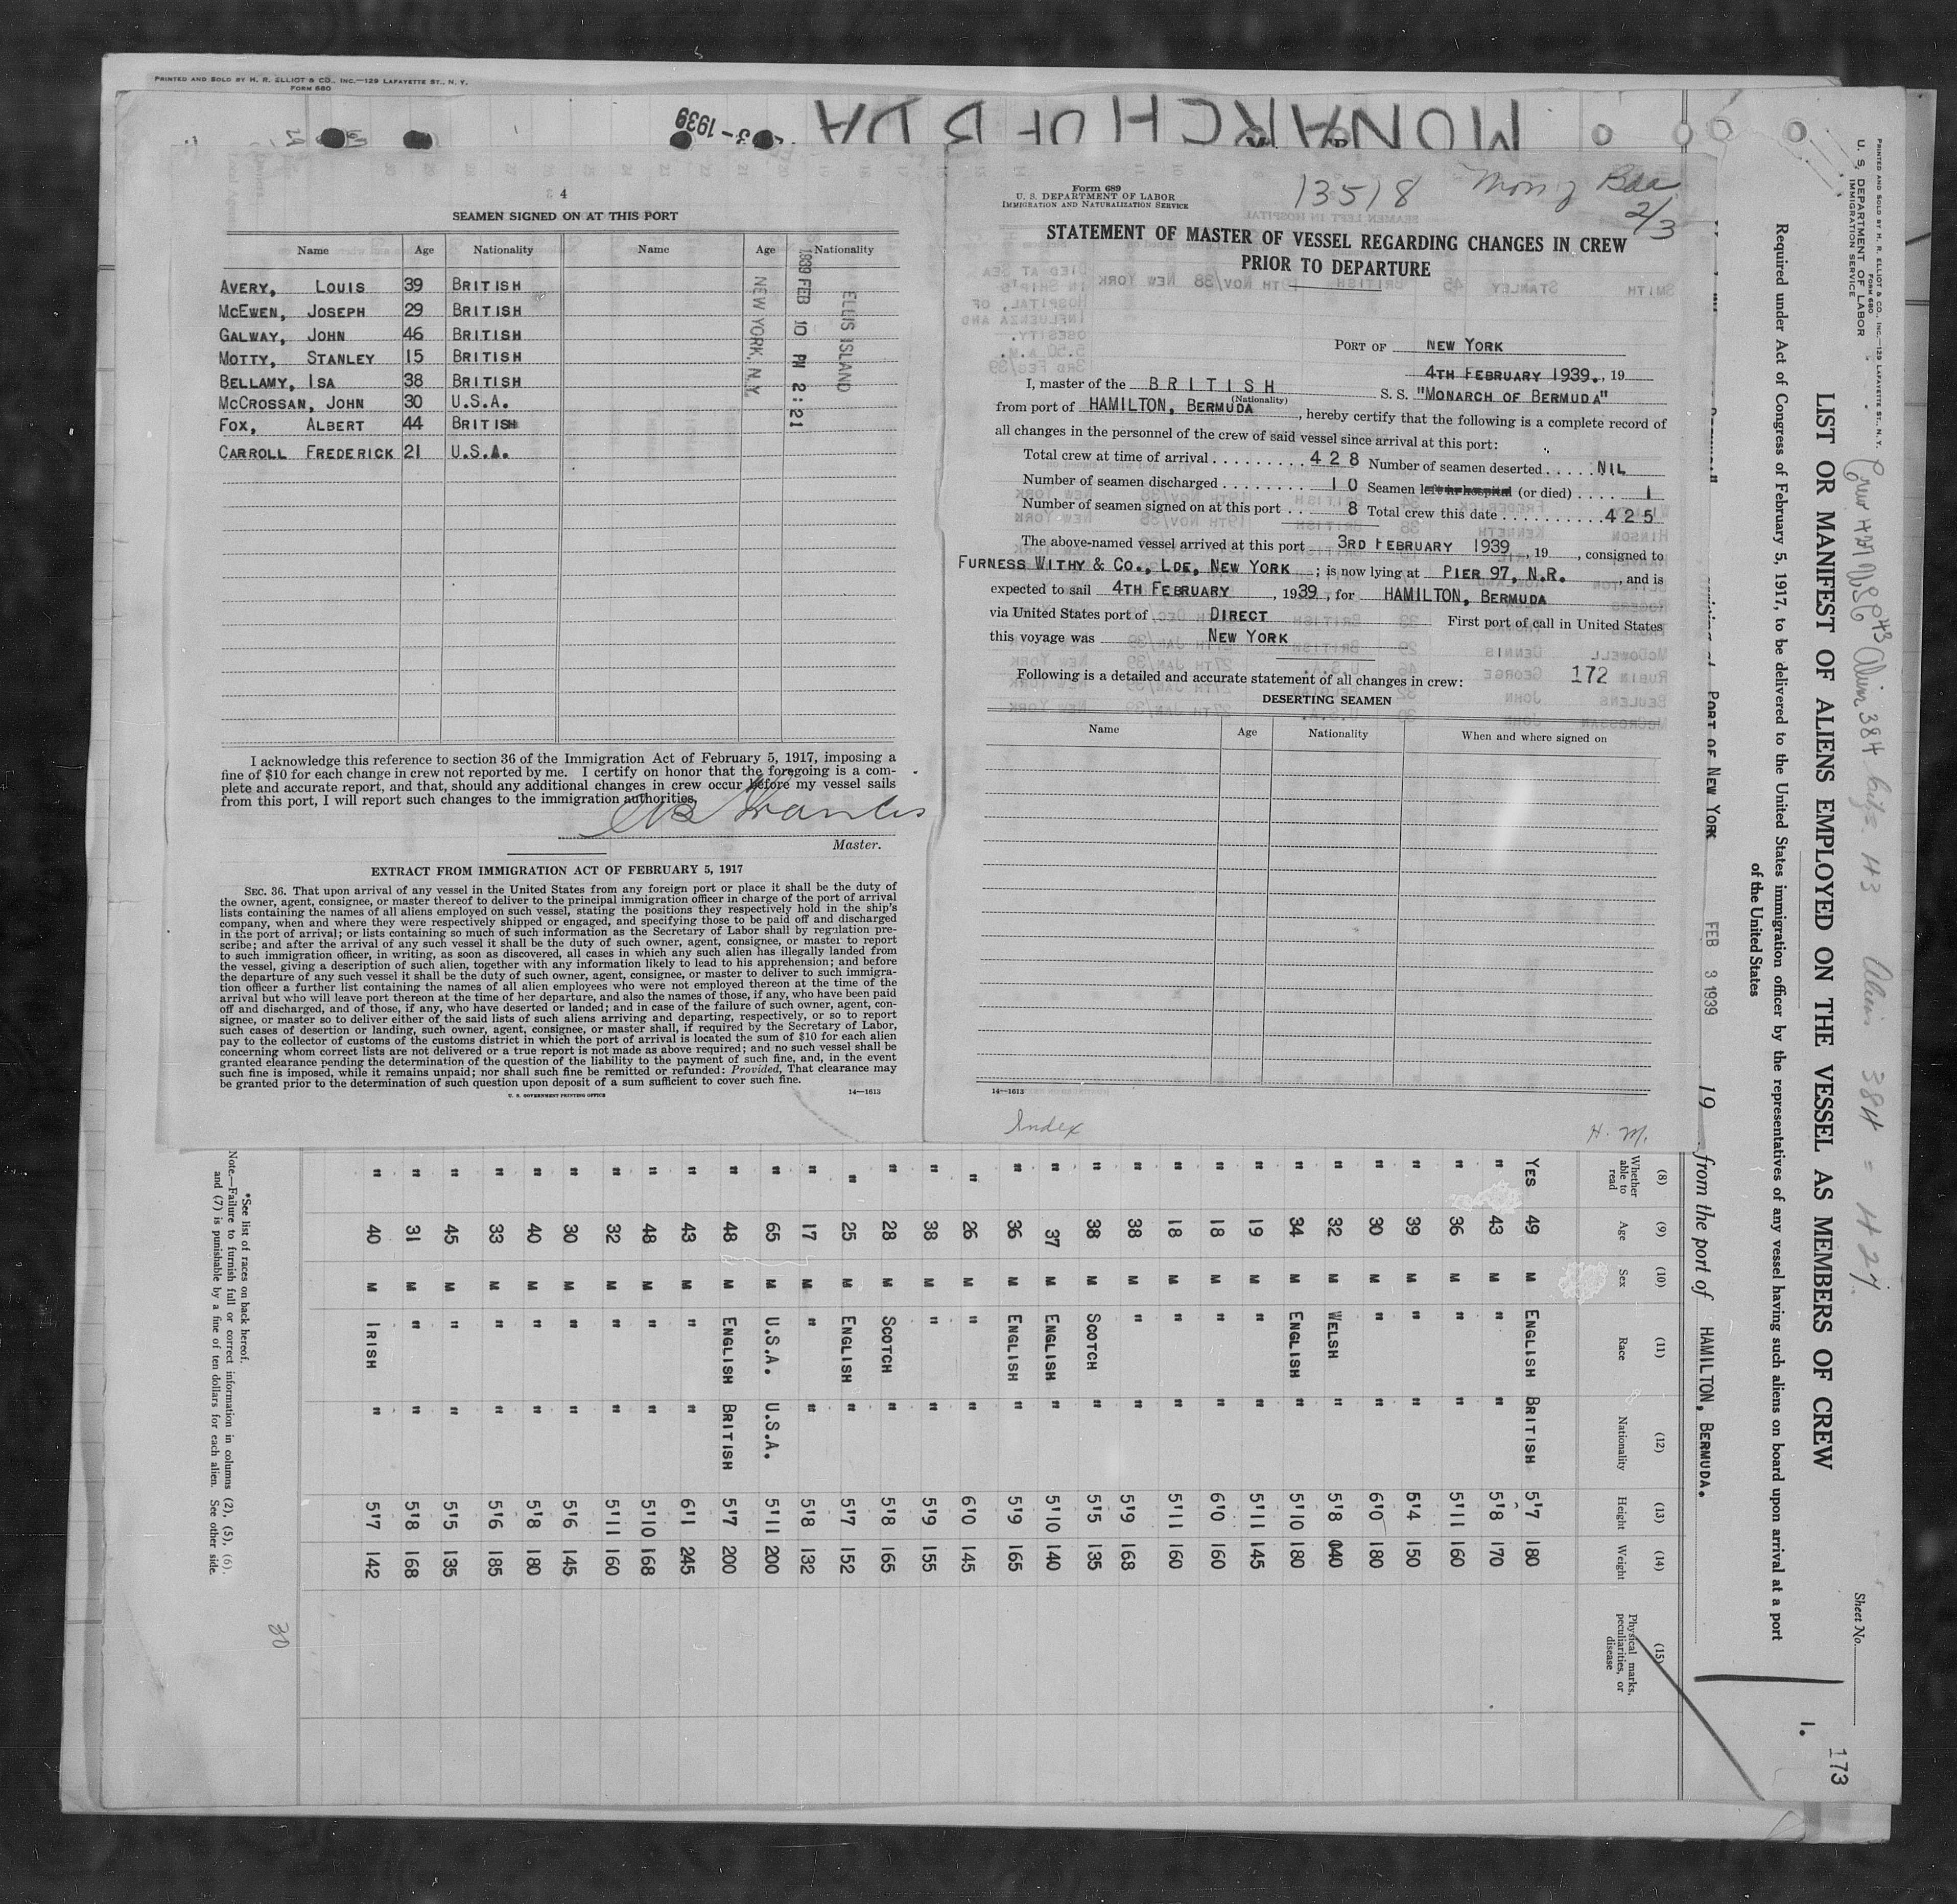 PRINTED AND SOLD BY H. R. ELLIOT & CO., INC.—129 LAFAYETTE ST., N. Y.
FORM 680
MONARCH OF BDA
3-1939
4
SEAMEN SIGNED ON AT THIS PORT
Name Age Nationality Name Age Nationality
AVERY, LOUIS 39 BRITISH
MCEWEN, JOSEPH 29 BRITISH
GALWAY, JOHN 46 BRITISH
MOTTY, STANLEY 15 BRITISH
BELLAMY, ISA 38 BRITISH
MCCROSSAN, JOHN 30 U.S.A.
FOX, ALBERT 44 BRITISH
CARROLL FREDERICK 21 U.S.A.
NEW YORK, N.Y.
1939 FEB 10 PM 2:21
ELLIS ISLAND
I acknowledge this reference to section 36 of the Immigration Act of February 5, 1917, imposing a
fine of $10 for each change in crew not reported by me. I certify on honor that the foregoing is a com-
plete and accurate report, and that, should any additional changes in crew occur before my vessel sails
from this port, I will report such changes to the immigration authorities.
Master.
EXTRACT FROM IMMIGRATION ACT OF FEBRUARY 5, 1917
SEC. 36. That upon arrival of any vessel in the United States from any foreign port or place it shall be the duty of
the owner, agent, consignee, or master thereof to deliver to the principal immigration officer in charge of the port of arrival
lists containing the names of all aliens employed on such vessel, stating the positions they respectively hold in the ship's
company, when and where they were respectively shipped or engaged, and specifying those to be paid off and discharged
in the port of arrival; or lists containing so much of such information as the Secretary of Labor shall by regulation pre-
scribe; and after the arrival of any such vessel it shall be the duty of such owner, agent, consignee, or master to report
to such immigration officer, in writing, as soon as discovered, all cases in which any such alien has illegally landed from
the vessel, giving a description of such alien, together with any information likely to lead to his apprehension; and before
the departure of any such vessel it shall be the duty of such owner, agent, consignee, or master to deliver to such immigra-
tion officer a further list containing the names of all alien employees who were not employed thereon at the time of the
arrival but who will leave port thereon at the time of her departure, and also the names of those, if any, who have been paid
off and discharged, and of those, if any, who have deserted or landed; and in case of the failure of such owner, agent, con-
signee, or master so to deliver either of the said lists of such aliens arriving and departing, respectively, or so to report
such cases of desertion or landing, such owner, agent, consignee, or master shall, if required by the Secretary of Labor,
pay to the collector of customs of the customs district in which the port of arrival is located the sum of $10 for each alien
concerning whom correct lists are not delivered or a true report is not made as above required; and no such vessel shall be
granted clearance pending the determination of the question of the liability to the payment of such fine, and, in the event
such fine is imposed, while it remains unpaid; nor shall such fine be remitted or refunded: Provided, That clearance may
be granted prior to the determination of such question upon deposit of a sum sufficient to cover such fine.
U. S. GOVERNMENT PRINTING OFFICE 14—1613
Form 689
U. S. DEPARTMENT OF LABOR
IMMIGRATION AND NATURALIZATION SERVICE
13518
2/3
STATEMENT OF MASTER OF VESSEL REGARDING CHANGES IN CREW
PRIOR TO DEPARTURE
PORT OF NEW YORK
4TH FEBRUARY 1939., 19
I, master of the BRITISH S. S. "MONARCH OF BERMUDA"
(Nationality)
from port of HAMILTON, BERMUDA, hereby certify that the following is a complete record of
all changes in the personnel of the crew of said vessel since arrival at this port:
Total crew at time of arrival ......... 428 Number of seamen deserted ..... NIL
Number of seamen discharged ........ 10 Seamen left in hospital (or died) .... 1
Number of seamen signed on at this port .. 8 Total crew this date .......... 425
The above-named vessel arrived at this port 3RD FEBRUARY 1939, 19, consigned to
FURNESS WITHY & CO., LDE, NEW YORK; is now lying at PIER 97, N.R., and is
expected to sail 4TH FEBRUARY, 1939, for HAMILTON, BERMUDA
via United States port of DIRECT First port of call in United States
this voyage was NEW YORK
Following is a detailed and accurate statement of all changes in crew: 172
DESERTING SEAMEN
Name Age Nationality When and where signed on
14—1613
Index
H. M.
PRINTED AND SOLD BY H. R. ELLIOT & CO., INC.—129 LAFAYETTE ST., N. Y.
FORM 680
U. S. DEPARTMENT OF LABOR
IMMIGRATION SERVICE
Sheet No.
1.
173
Aliens 384 = 427.
LIST OR MANIFEST OF ALIENS EMPLOYED ON THE VESSEL AS MEMBERS OF CREW
Required under Act of Congress of February 5, 1917, to be delivered to the United States immigration officer by the representatives of any vessel having such aliens on board upon arrival at a port
of the United States
PORT OF NEW YORK FEB 3 1939 19 from the port of HAMILTON, BERMUDA.
(8) (9) (10) (11) (12) (13) (14) (15)
Whether able to read Age Sex Race Nationality Height Weight Physical marks, peculiarities, or disease
YES 49 M ENGLISH BRITISH 5'7 180
" 43 M " " 5'8 170
" 36 M " " 5'11 160
" 39 M " " 5'4 150
" 30 M " " 6'0 180
" 32 M WELSH " 5'8 040
" 34 M ENGLISH " 5'10 180
" 19 M " " 5'11 145
" 18 M " " 6'0 160
" 18 M " " 5'11 160
" 38 M " " 5'9 168
" 38 M SCOTCH " 5'5 135
" 37 M ENGLISH " 5'10 140
" 36 M ENGLISH " 5'9 165
" 26 M " " 6'0 145
" 38 M " " 5'9 155
" 28 M SCOTCH " 5'8 165
" 25 M ENGLISH " 5'7 152
" 17 M " " 5'8 132
" 65 M U.S.A. U.S.A. 5'11 200
" 48 M ENGLISH BRITISH 5'7 200
" 43 M " " 6'1 245
" 48 M " " 5'10 168
" 32 M " " 5'11 160
" 30 M " " 5'6 145
" 40 M " " 5'8 180
" 33 M " " 5'6 185
" 45 M " " 5'5 135
" 31 M " " 5'8 168
" 40 M IRISH " 5'7 142
*See list of races on back hereof.
Note.—Failure to furnish full or correct information in columns (2), (5), (6),
and (7) is punishable by a fine of ten dollars for each alien. See other side.
30